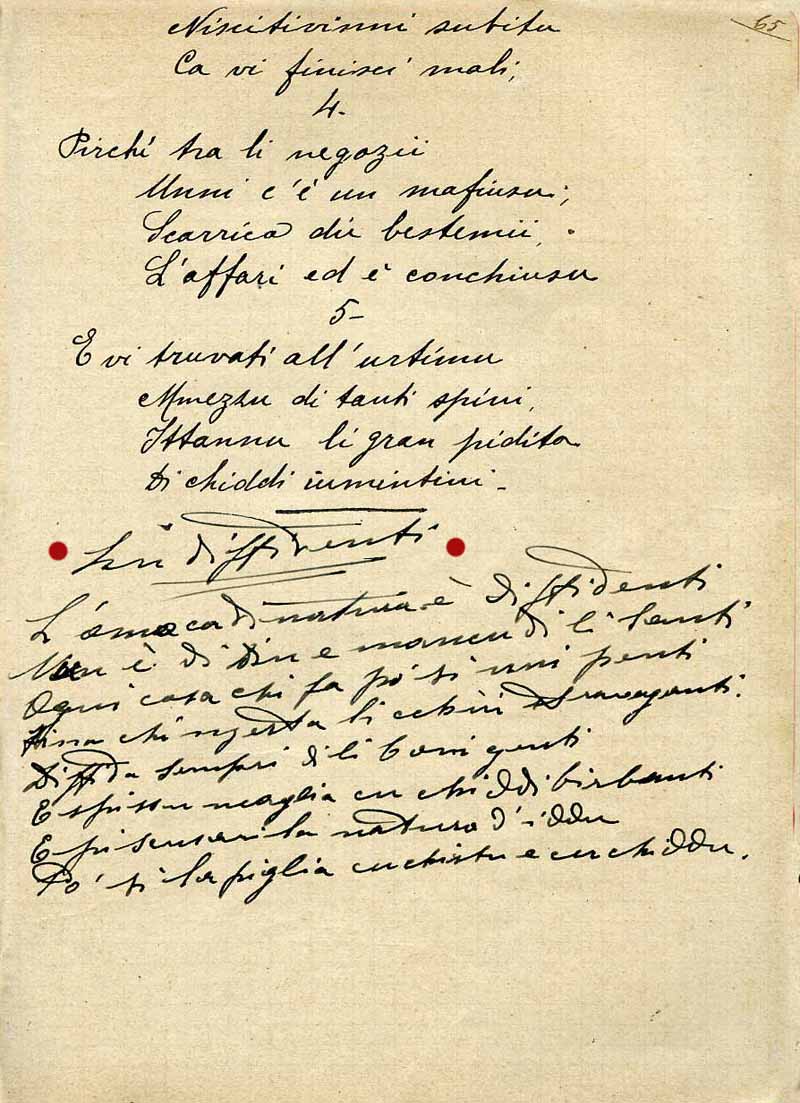 65
Niscitivinni subitu
Ca vi finisci mali,
4.
Pirchí tra li negozii
Unni c'è un mafiusu;
Scarrica diu bestemii,
L'affari ed è conchiusu
5-
E vi truvati all'urtimu
Mmezzu di tanti spini,
Ittannu li gran pidita
Di chiddi iumintini-
Lu diffidenti
L'omo ca di natura è diffidenti
Nun è di Diu e mancu di li Santi
Ogni cosa chi fa pó si nni penti
chi li cchiù stravaganti.
Diffida sempri di li boni genti
E spissu cu chiddi birbanti
E pi scusari la natura d'iddu
Pó si la piglia cu chistu e cu chiddu.